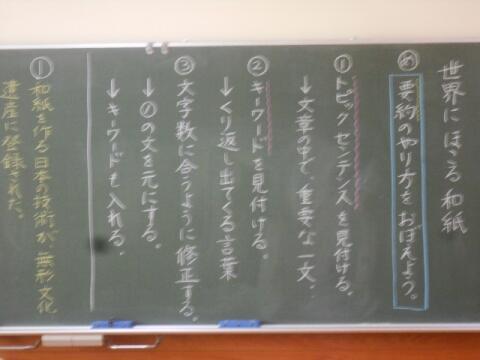 世界にほこる和紙
め 要約のやり方をおぼえよう。
① トピックセンテンスを見付ける。
→文章の中で、重要な一文。
② キーワードを見付ける。
→くり返し出てくる言葉
③ 文字数に合うように修正する。
→①の文を元にする。
→キーワードも入れる。
① 和紙を作る日本の技術が、無形文化
遺産に登録された。